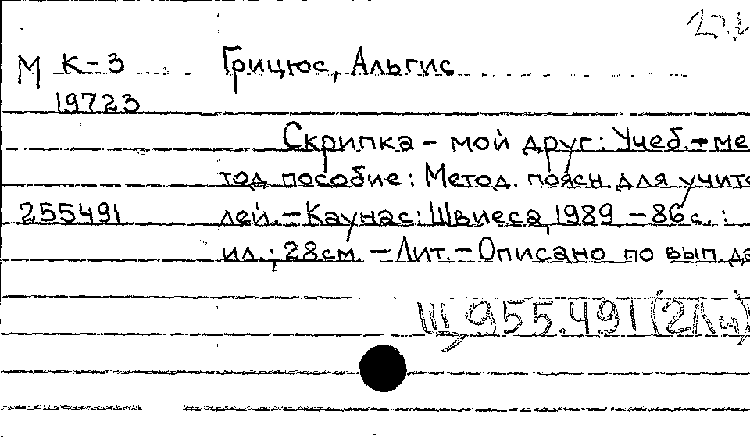 М К-3 Грицюс, Альгис
19723
Скрипка - мой друг: Учеб.-ме
тод. пособие: Метод. поясн. для учите
255491 лей. - Каунас: Швиеса, 1989 - 86с.:
ил.; 28см. - Лит. - Описано по вып. да
Щ 955.491(2Ли)